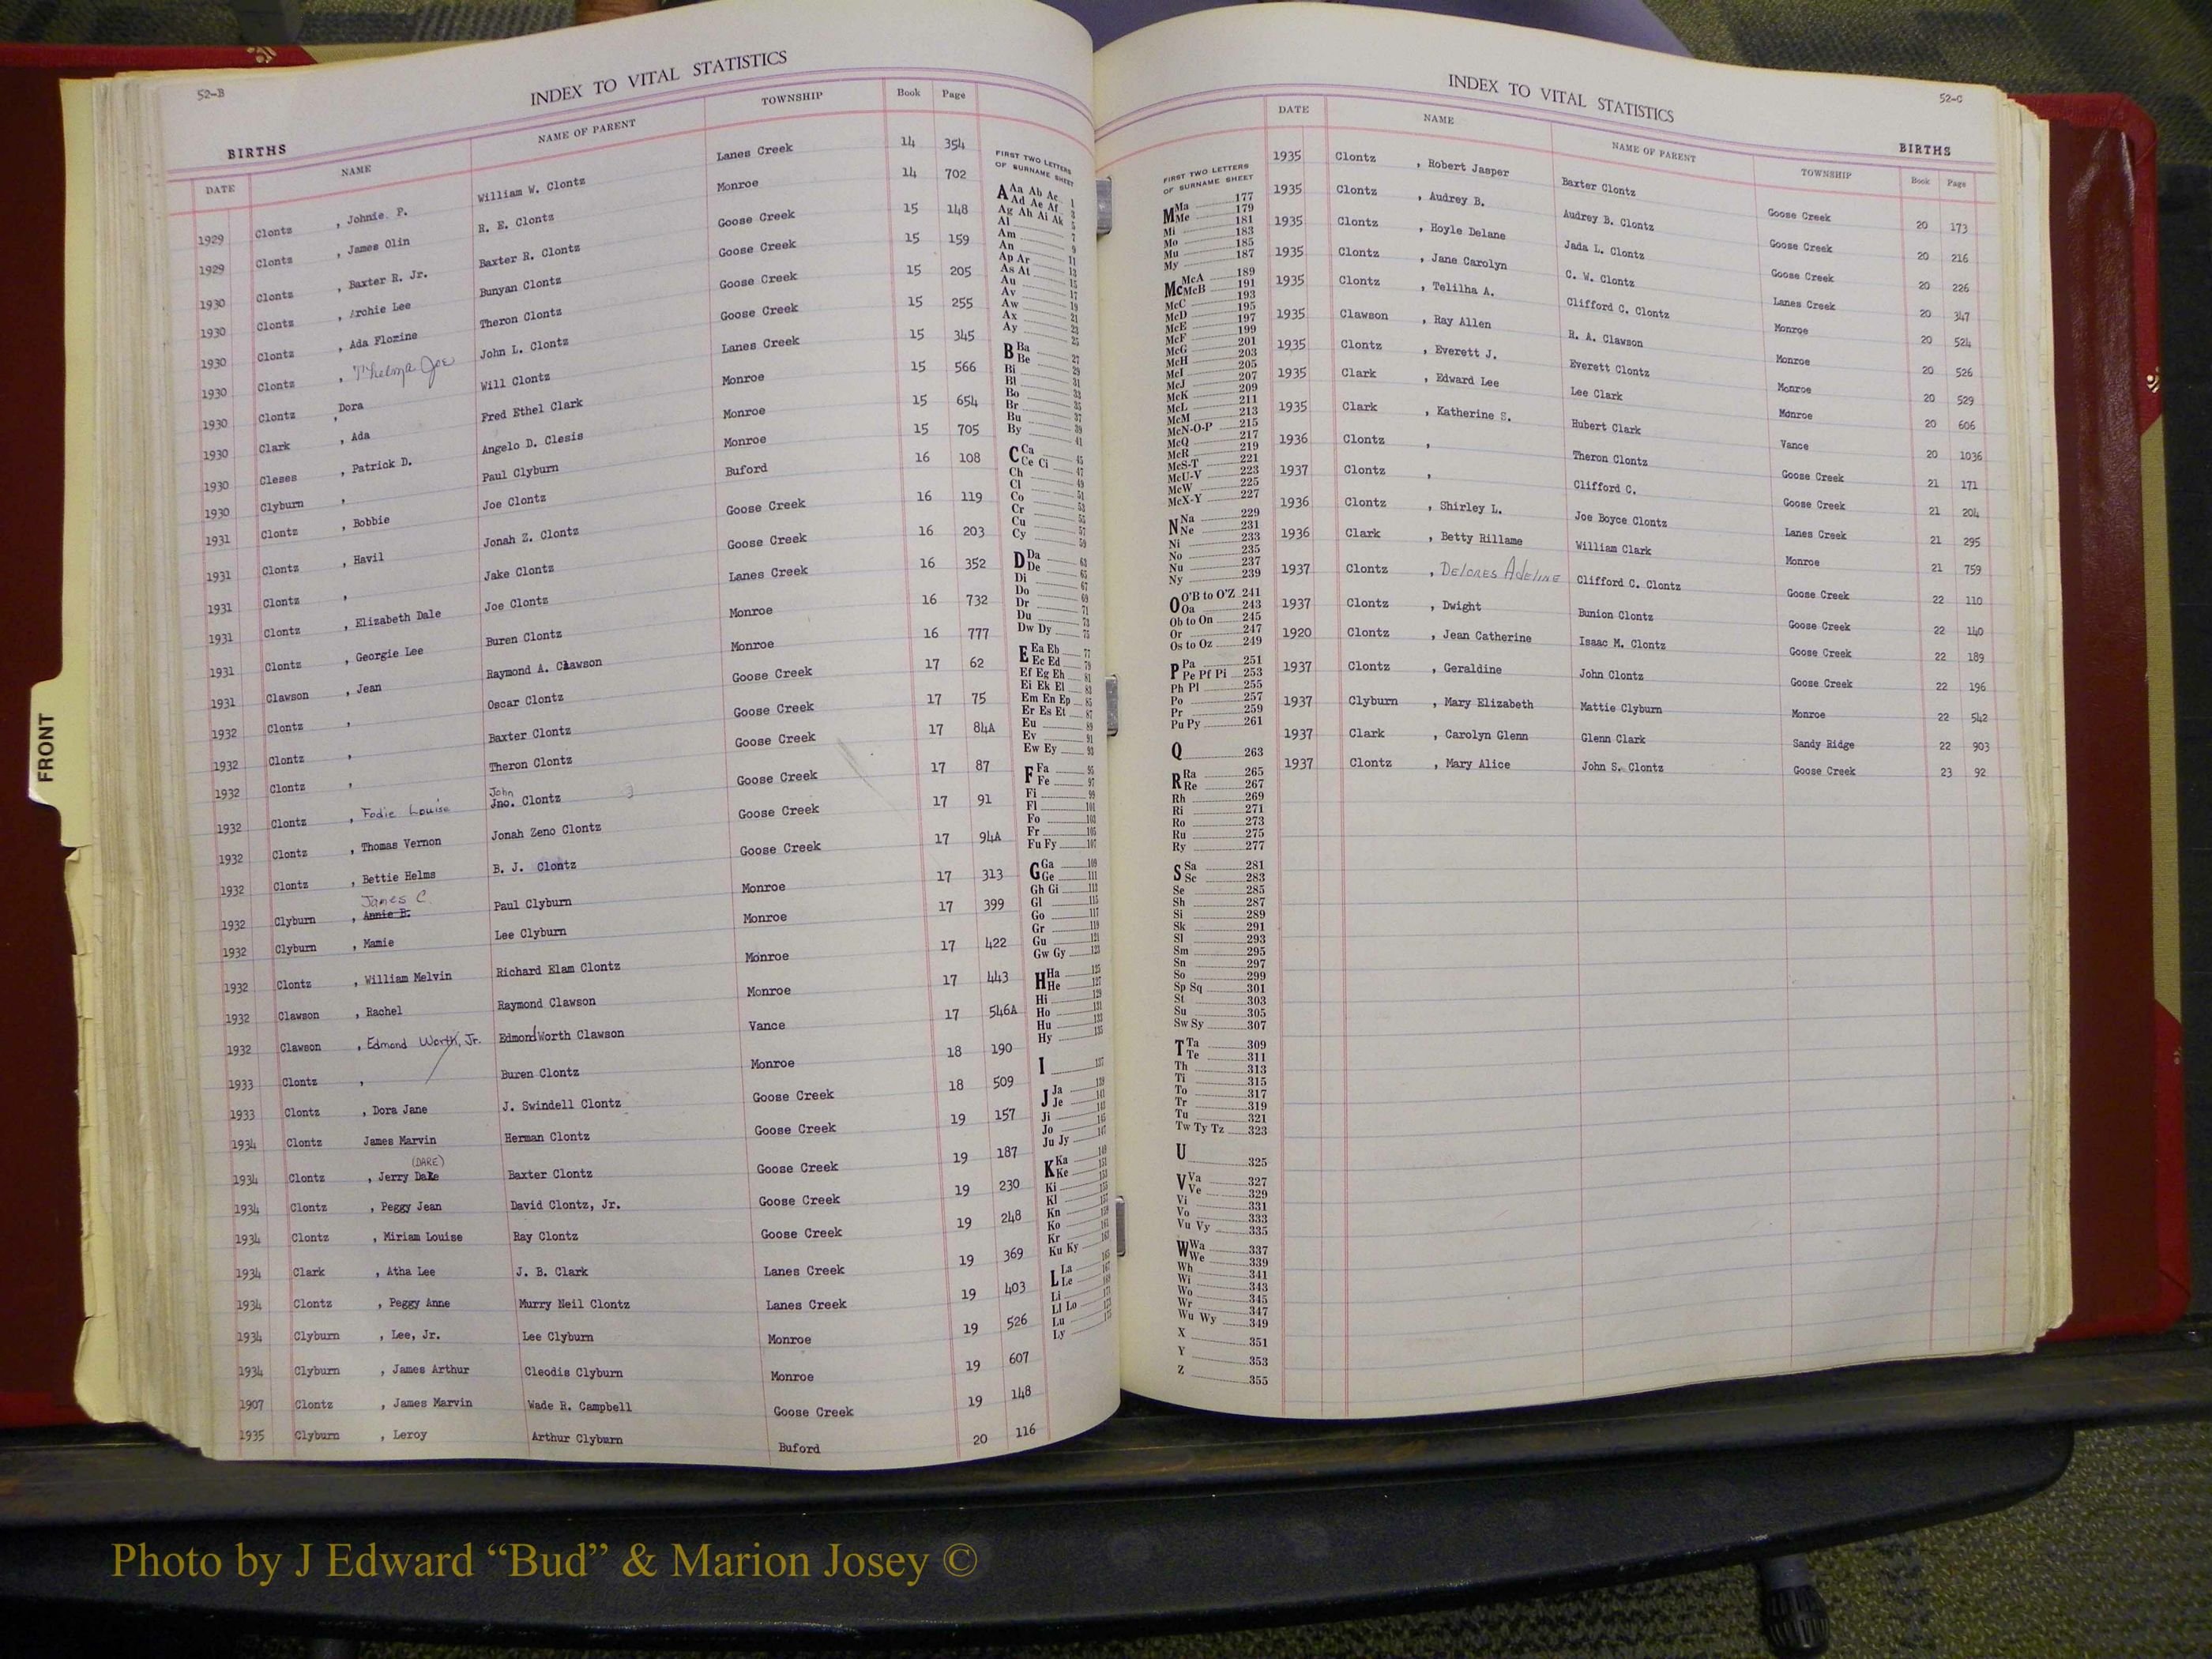 52-B
INDEX TO VITAL STATISTICS
BIRTHS
DATE NAME NAME OF PARENT TOWNSHIP Book Page
1929 Clontz , Johnie P. William W. Clontz Lanes Creek 14 354
1929 Clontz , James Olin R. E. Clontz Monroe 14 702
1930 Clontz , Baxter R. Jr. Baxter R. Clontz Goose Creek 15 148
1930 Clontz , Archie Lee Bunyan Clontz Goose Creek 15 159
1930 Clontz , Ada Florine Theron Clontz Goose Creek 15 205
1930 Clontz , Thelma Joe John L. Clontz Goose Creek 15 255
1930 Clontz , Dora Will Clontz Lanes Creek 15 345
1930 Clark , Ada Fred Ethel Clark Monroe 15 566
1930 Cleses , Patrick D. Angelo D. Clesis Monroe 15 654
1930 Clyburn , Paul Clyburn Monroe 15 705
1931 Clontz , Bobbie Joe Clontz Buford 16 108
1931 Clontz , Havil Jonah Z. Clontz Goose Creek 16 119
1931 Clontz , Jake Clontz Goose Creek 16 203
1931 Clontz , Elizabeth Dale Joe Clontz Lanes Creek 16 352
1931 Clontz , Georgie Lee Buren Clontz Monroe 16 732
1931 Clawson , Jean Raymond A. Clawson Monroe 16 777
1932 Clontz , Oscar Clontz Goose Creek 17 62
1932 Clontz , Baxter Clontz Goose Creek 17 75
1932 Clontz , Theron Clontz Goose Creek 17 84A
John
1932 Clontz , Fodie Louise Jno. Clontz Goose Creek 17 87
1932 Clontz , Thomas Vernon Jonah Zeno Clontz Goose Creek 17 91
1932 Clontz , Bettie Helms B. J. Clontz Goose Creek 17 94A
James C.
1932 Clyburn , Annie B. Paul Clyburn Monroe 17 313
1932 Clyburn , Mamie Lee Clyburn Monroe 17 399
1932 Clontz , William Melvin Richard Elam Clontz Monroe 17 422
1932 Clawson , Rachel Raymond Clawson Monroe 17 443
1932 Clawson , Edmond Worth, Jr. Edmond Worth Clawson Vance 17 546A
1933 Clontz , Buren Clontz Monroe 18 190
1933 Clontz , Dora Jane J. Swindell Clontz Goose Creek 18 509
1934 Clontz James Marvin Herman Clontz Goose Creek 19 157
(DARE)
1934 Clontz , Jerry Dale Baxter Clontz Goose Creek 19 187
1934 Clontz , Peggy Jean David Clontz, Jr. Goose Creek 19 230
1934 Clontz , Miriam Louise Ray Clontz Goose Creek 19 248
1934 Clark , Atha Lee J. B. Clark Lanes Creek 19 369
1934 Clontz , Peggy Anne Murry Neil Clontz Lanes Creek 19 403
1934 Clyburn , Lee, Jr. Lee Clyburn Monroe 19 526
1934 Clyburn , James Arthur Cleodis Clyburn Monroe 19 607
1907 Clontz , James Marvin Wade R. Campbell Goose Creek 19 148
1935 Clyburn , Leroy Arthur Clyburn Buford 20 116
FRONT
FIRST TWO LETTERS
OF SURNAME SHEET
A Aa Ab Ac 1
Ad Ae Af 3
Ag Ah Ai Ak 5
Al 7
Am 9
An 11
Ap Ar 13
As At 15
Au 17
Av 19
Aw 21
Ax 23
Ay 25
B Ba 27
Be 29
Bi 31
Bl 33
Bo 35
Br 37
Bu 39
By 41
C Ca 45
Ce Ci 47
Ch 49
Cl 51
Co 53
Cr 55
Cu 57
Cy 59
D Da 63
De 65
Di 67
Do 69
Dr 71
Du 73
Dw Dy 75
E Ea Eb 77
Ec Ed 79
Ef Eg Eh 81
Ei Ek El 83
Em En Ep 85
Er Es Et 87
Eu 89
Ev 91
Ew Ey 93
F Fa 95
Fe 97
Fi 99
Fl 101
Fo 103
Fr 105
Fu Fy 107
G Ga 109
Ge 111
Gh Gi 113
Gl 115
Go 117
Gr 119
Gu 121
Gw Gy 123
H Ha 125
He 127
Hi 129
Ho 131
Hu 133
Hy 135
I 137
J Ja 139
Je 141
Ji 143
Jo 145
Ju Jy 147
K Ka 149
Ke 151
Ki 153
Kl 155
Kn 157
Ko 159
Kr 161
Ku Ky 163
L La 165
Le 169
Li 171
Ll Lo
Lu
Ly 175
52-C
INDEX TO VITAL STATISTICS
BIRTHS
FIRST TWO LETTERS
OF SURNAME SHEET
M Ma 177
Me 179
Mi 181
Mo 183
Mu 185
My 187
Mc McA 189
McB 191
McC 193
McD 195
McE 197
McF 199
McG 201
McH 203
McI 205
McJ 207
McK 209
McL 211
McM 213
McN-O-P 215
McQ 217
McR 219
McS-T 221
McU-V 223
McW 225
McX-Y 227
N Na 229
Ne 231
Ni 233
No 235
Nu 237
Ny 239
O O'B to O'Z 241
Oa 243
Ob to On 245
Or 247
Os to Oz 249
P Pa 251
Pe Pf Pi 253
Ph Pl 255
Po 257
Pr 259
Pu Py 261
Q 263
R Ra 265
Re 267
Rh 269
Ri 271
Ro 273
Ru 275
Ry 277
S Sa 281
Sc 283
Se 285
Sh 287
Si 289
Sk 291
Sl 293
Sm 295
Sn 297
So 299
Sp Sq 301
St 303
Su 305
Sw Sy 307
T Ta 309
Te 311
Th 313
Ti 315
To 317
Tr 319
Tu 321
Tw Ty Tz 323
U 325
V Va 327
Ve 329
Vi 331
Vo 333
Vu Vy 335
W Wa 337
We 339
Wh 341
Wi 343
Wo 345
Wr 347
Wu Wy 349
X 351
Y 353
Z 355
DATE NAME NAME OF PARENT TOWNSHIP Book Page
1935 Clontz , Robert Jasper Baxter Clontz Goose Creek 20 173
1935 Clontz , Audrey B. Audrey B. Clontz Goose Creek 20 216
1935 Clontz , Hoyle Delane Jada L. Clontz Goose Creek 20 226
1935 Clontz , Jane Carolyn C. W. Clontz Lanes Creek 20 347
1935 Clontz , Telilha A. Clifford C. Clontz Monroe 20 524
1935 Clawson , Ray Allen R. A. Clawson Monroe 20 526
1935 Clontz , Everett J. Everett Clontz Monroe 20 529
1935 Clark , Edward Lee Lee Clark Monroe 20 606
1935 Clark , Katherine S. Hubert Clark Vance 20 1036
1936 Clontz , Theron Clontz Goose Creek 21 171
1937 Clontz , Clifford C. Goose Creek 21 204
1936 Clontz , Shirley L. Joe Boyce Clontz Lanes Creek 21 295
1936 Clark , Betty Rillame William Clark Monroe 21 759
1937 Clontz , DELORES ADELINE Clifford C. Clontz Goose Creek 22 110
1937 Clontz , Dwight Bunion Clontz Goose Creek 22 140
1920 Clontz , Jean Catherine Isaac M. Clontz Goose Creek 22 189
1937 Clontz , Geraldine John Clontz Goose Creek 22 196
1937 Clyburn , Mary Elizabeth Mattie Clyburn Monroe 22 542
1937 Clark , Carolyn Glenn Glenn Clark Sandy Ridge 22 903
1937 Clontz , Mary Alice John S. Clontz Goose Creek 23 92
Photo by J Edward “Bud” & Marion Josey ©